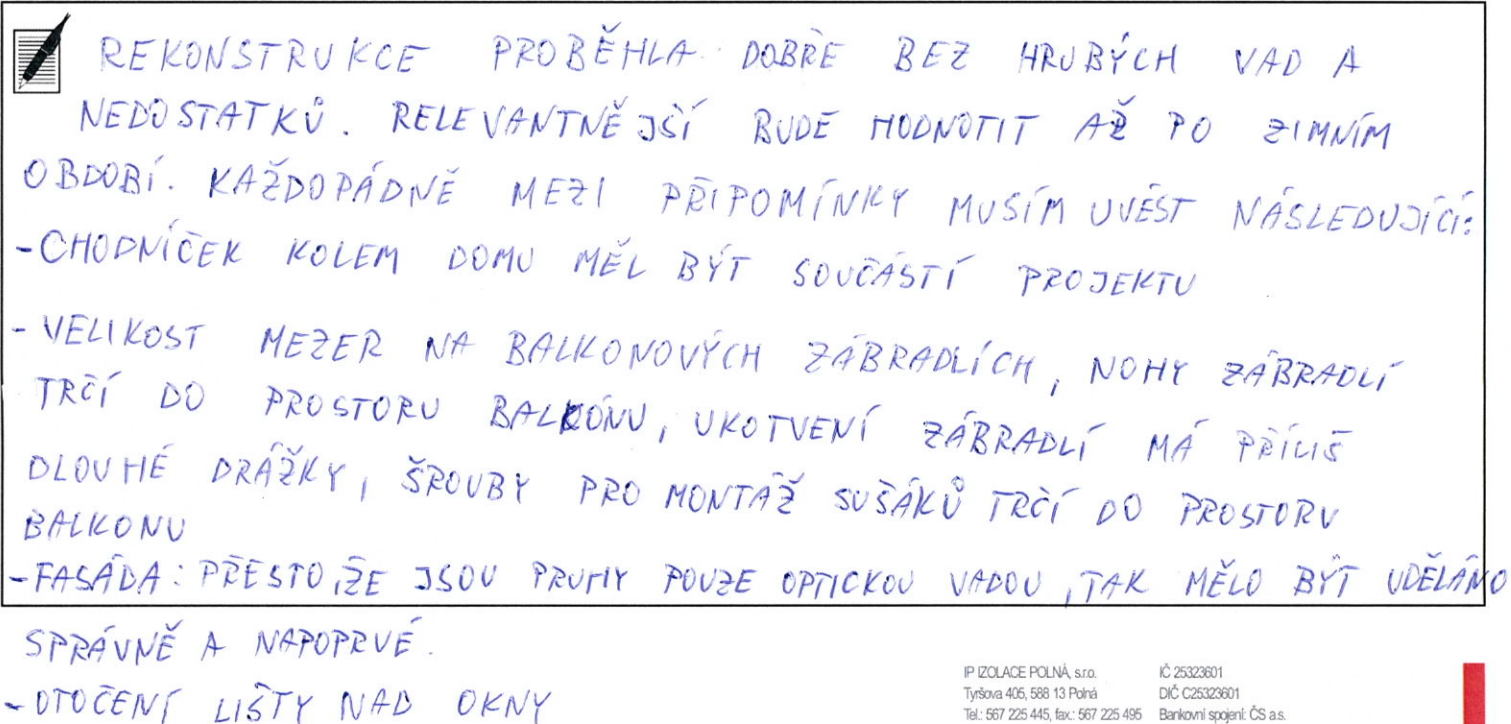 REKONSTRUKCE PROBĚHLA DOBŘE BEZ HRUBÝCH VAD A
NEDOSTATKŮ. RELEVANTNĚJŠÍ BUDE HODNOTIT AŽ PO ZIMNÍM
OBDOBÍ. KAŽDOPÁDNĚ MEZI PŘIPOMÍNKY MUSÍM UVÉST NÁSLEDUJÍCÍ:
-CHODNÍČEK KOLEM DOMU MĚL BÝT SOUČÁSTÍ PROJEKTU
- VELIKOST MEZER NA BALKONOVÝCH ZÁBRADLÍCH, NOHY ZÁBRADLÍ
TRČÍ DO PROSTORU BALKÓNU, UKOTVENÍ ZÁBRADLÍ MÁ PŘÍLIŠ
DLOUHÉ DRÁŽKY, ŠROUBY PRO MONTÁŽ SUŠÁKŮ TRČÍ DO PROSTORU
BALKONU
-FASÁDA: PŘESTO, ŽE JSOU PRUHY POUZE OPTICKOU VADOU, TAK MĚLO BÝT UDĚLÁNO
SPRÁVNĚ A NAPOPRVÉ.
- OTOČENÍ LIŠTY NAD OKNY
IP IZOLACE POLNÁ, s.r.o. IČ 25323601
Tyršova 405, 588 13 Polná DIČ C25323601
Tel.: 567 225 445, fax.: 567 225 495 Bankovní spojení: ČS a.s.